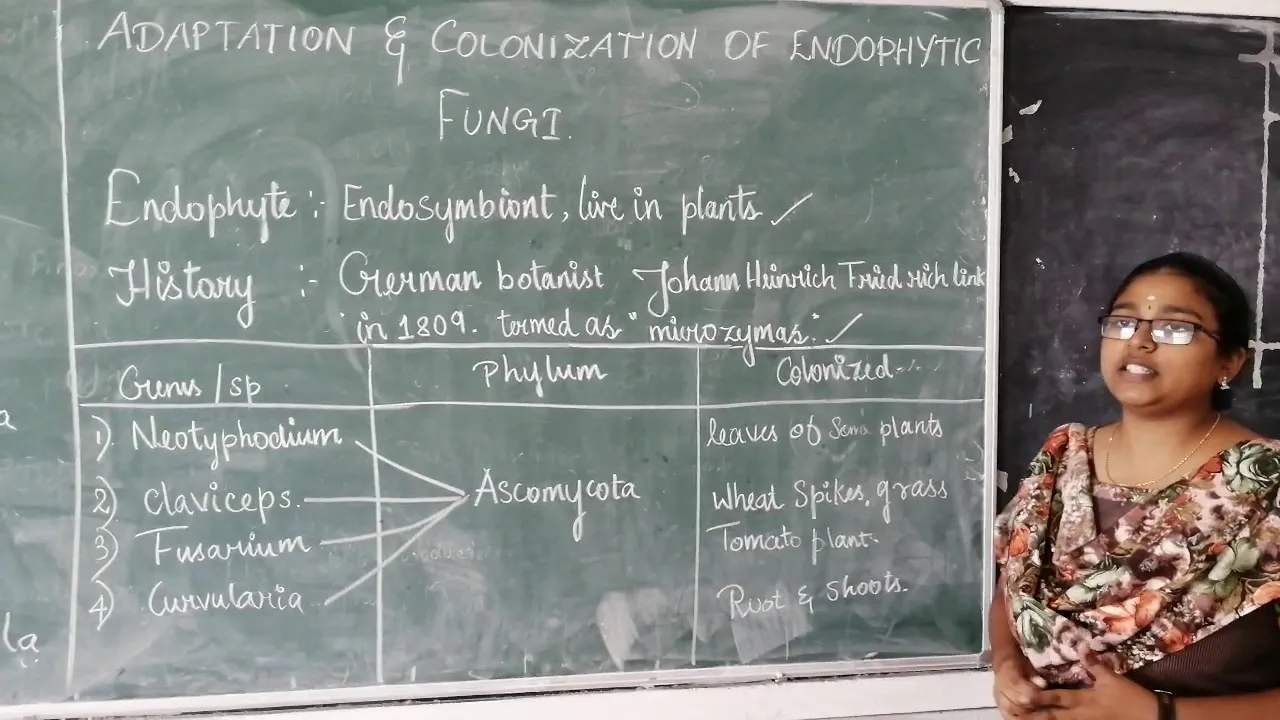 ADAPTATION & COLONIZATION OF ENDOPHYTIC
FUNGI.
Endophyte :- Endosymbiont, live in plants ✓
History :- German botanist Johann Heinrich Friedrich link
in 1809. termed as "microzymas." ✓
Genus/sp Phylum Colonized
1) Neotyphodium leaves of Some plants
2) claviceps. Ascomycota wheat Spikes, grass
3) Fusarium Tomato plant.
4) Curvularia Root & Shoots.
a
la